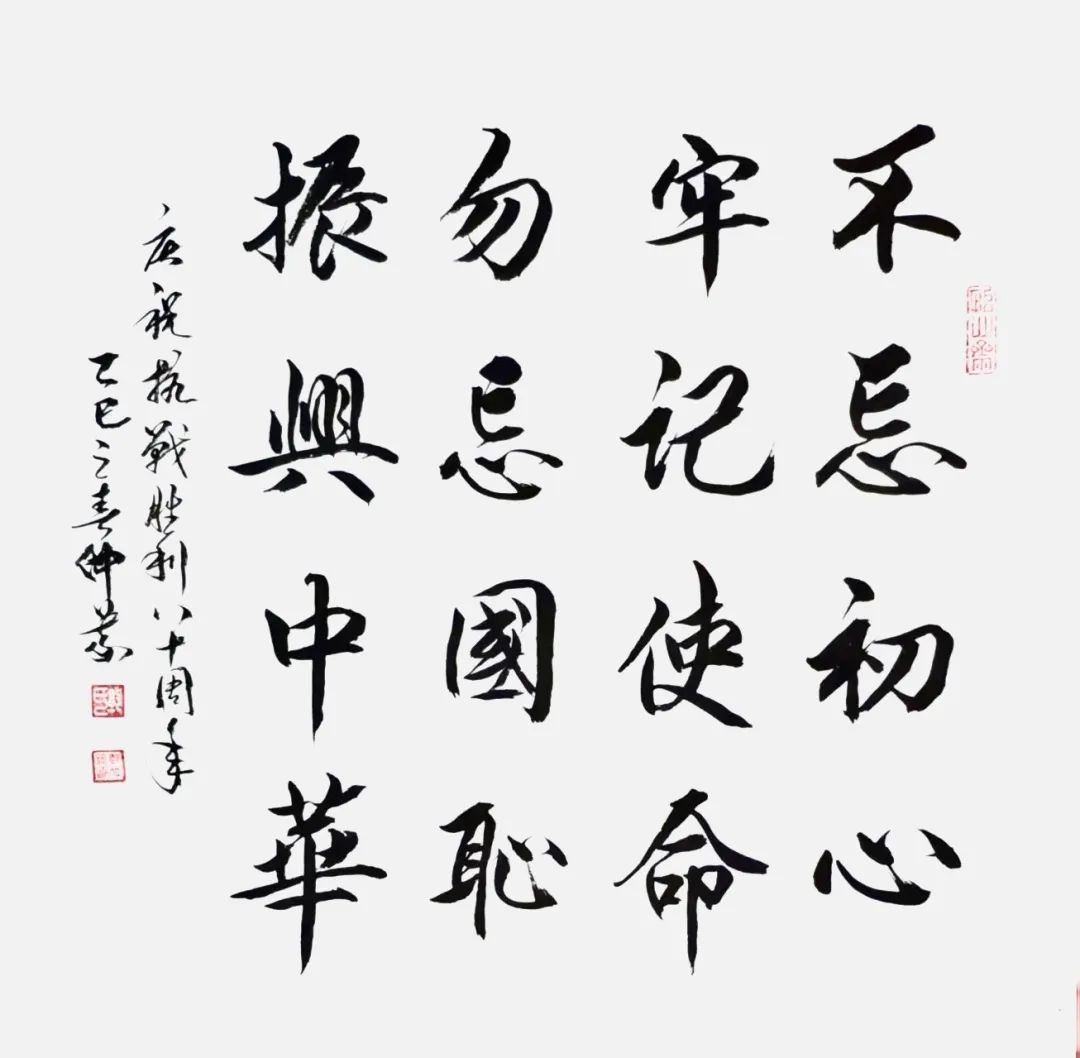 不忘初心
牢记使命
勿忘國恥
振興中華
庆祝抗战胜利八十周年
乙巳之春仲